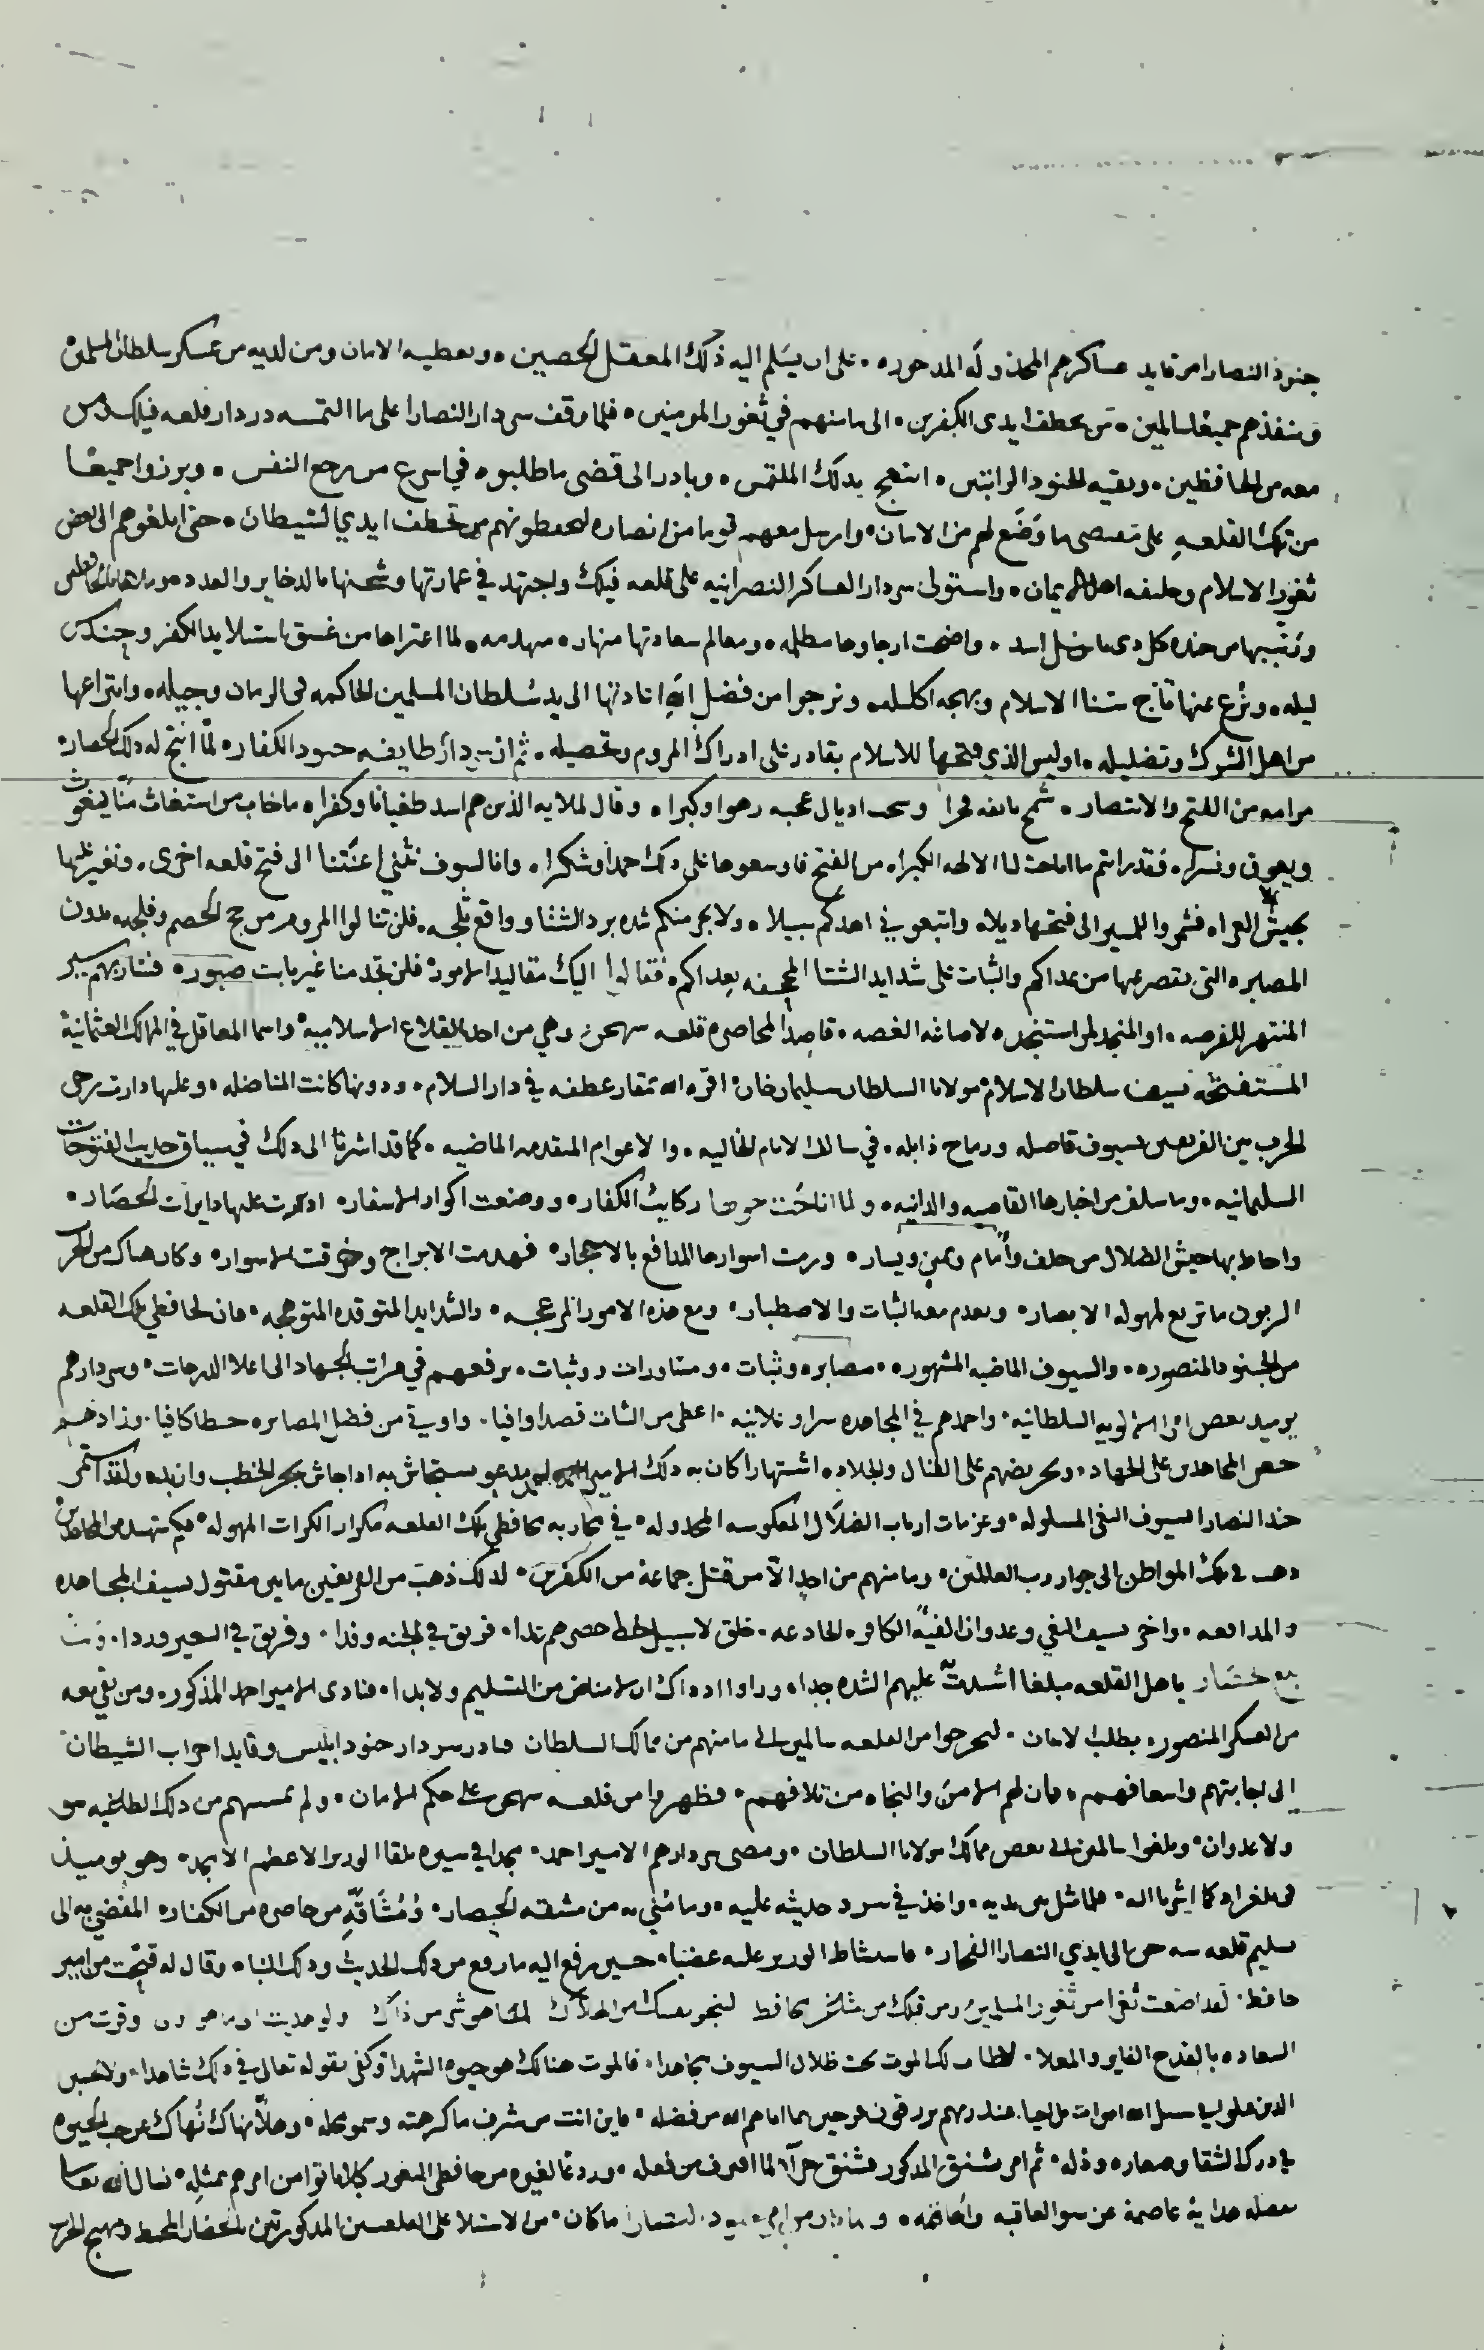 جنود النصارا من قايد عساكرهم المخذوله المدحوره • على ان يسلم اليه ذلك المعقل الحصين • ويعطيه الامان ومن لديه من عسكر سلطان المسلمين
وينفذهم جميعا سالمين • من تخطف ايدي الكفرين • الى مامنهم في ثغور المومنين • فلما وقف سردار النصارا على ما التمسه دزدار قلعه فيلك ومن
معه من المحافظين • وبقيه الجنود الرابتين • ابتهج بذلك الملتمس • وبادر الى قضى ما طلبوه • في اسرع من رجع النفس • وبرزوا جميعا
من تلك القلعه على مقتضى ما وَضَع لهم من الامان • وارسل معهم قوما من انصاره لحفظونهم من تخطف ايدي الشيطان • حتى ابلغوهم الى بعض
ثغور الاسلام وخليفه اهل الايمان • واستولى سردار العساكر النصرانيه على قلعه فيلك واجتهد في عمارتها وشحنها بالدخاير والعدد
ورتب بها من جنده كل ذى باس اسد • واضحت ارجاوها مظلمه • ومعالم سعادتها منهاره • منهدمه • لما اعتراها من غسق استلا يد الكفر وجندس
ليله • ونُزع عنها تاج سنا الاسلام وبهجه اكليله • ونرجوا من فضل الله اعادتها الى يد سُلطان المسلمين الحاكمه فى الزمان وجيله • وانتزاعها
من اهل الشرك وتضليله • اوليس الذي فتحها للاسلام بقادر على ادراك المروم وتحصيله • ثم ان سردار طايفه جنود الكفار • لمّا انتج له ذلك الحصار
مرامه من الفتح والانتصار • شمخ بانفه فخرا وسحب اديال عجبه زهوا وكبرا • وقال لملايه الذين هم اسد طغيانا وكفرا • ما خاب من استغاث منّا ليغوث
ويعوق ونسرا • فقد رايتم ما اباحت لنا الالهه الكبرا • من الفتح فاوسعوها على ذلك حمدا وشكرا • وانا لسوف نثني اعنّتنا الى فتح قلعه اخرى • ونغير عليها
بجيش العرا • فشمروا للسير الى فتحها ديلا • واتبعوني اهدكم سبيلا • ولا يجرمنكم شده برد الشتا وواقع ثلجه • فلن تنالوا المروم من حج الخصم وفلجه بدون
المصابره التى يقصر عنها من عداكم والثبات على شدايد الشتا المجحفه بعداكم • فقالوا اليك مقاليد الامور • فلن تجد منا غير ثابت صبور • فسار بهم سير
المنتهز للفرصه • او المنجد لمن استنجده لاصابه الغصه • قاصدا لمحاصره قلعه سهجن وهي من احد القلاع الاسلاميه • واسما المعاقل في الممالك العثمانية
المستفتحه بسيف سلطان الاسلام مولانا السلطان سليمان خان • اقره الله بمقار عطفه في دار السلام • ودونها كانت المناضله • وعليها دارت رحى
الحرب بين الفريقين بسيوف قاصله ورماح ذابله • في سالف الايام الخاليه • والاعوام المتقدمه الماضيه • كما قد اشرنا الى ذلك في سياق حديث الفتوحات
السليمانيه • وما سلف من اخبارها القاصيه والدانيه • ولما اناخت حولها ركايب الكفار • ووضعت اكوار الاسفار • اديرت عليها دايرات الحصار •
واحاط بها جيش الضلال من خلف وأمام ويمين ويسار • ورمت اسوارها المدافع بالاحجار • فهدمت الابراج وخرقت الاسوار • وكان هناك من الحرب
الزبون ما تزيغ لهوله الابصار • ويعدم معه الثبات والاصطبار • ومع هذه الامور المزعجه • والشدايد المتوقده المتوهجه • فان لمحافظي تلك القلعه
من الجنود المنصوره • والسيوف الماضيه المشهوره • مصابره وثبات • ومشاورات ووثبات • يرفعهم في مراتب الجهاد الى اعلا الدرجات • وسردارهم
يوميذ بعض امرا الالويه السلطانيه • واحمدهم في المجاهده سرا وعلانيه • اعطى من الثبات قصدا وافيا • واوتي من فضل المصابره حظا كافيا • وزادهم
حض المجاهدين على الجهاد • وتحريضهم على القتال والجلاد • اشتهارا كان به ذلك الامير احمد يدعى يستجاش به اذا جاش بحر الخطب وازبد • ولقد استمر
جند النصارا بسيوف البغي المسلوله • وعزمات ارباب الضلال المعكوسه المخذوله • في محاربه محافظي تلك القلعه مكرار الكرات المهوله • فكم شهيد من المجاهدين
ذهب في تلك المواطن الى جوار رب العالمين • وما منهم من احد الا من قتل جماعة من الكفرين • لذلك ذهب من الفريقين ما بين مقتول بسيف المجاهده
والمدافعه • واخر بسيف البغي وعدوان الفية الكافره الخادعه • خلق لا سبيل الى حصرهم عدا • فريق في الجنه وفدا • وفريق في السعير وردا •
بلغ الحصار باهل القلعه مبلغا اشتدت عليهم الشده جدا • وراوا اذ ذاك ان لا مناص من التسليم ولا بدا • فنادى الامير احمد المذكور • ومن بقي معه
من العسكر المنصور • بطلب الامان • ليخرجوا من القلعه سالمين الى مامنهم من ممالك السلطان فبادر سردار جنود ابليس وقايد احزاب الشيطان
الى اجابتهم واسعافهم • بان لهم الامن والنجاه من تلافهم • فظهروا من قلعه سهجن على حكم الامان • ولم يمسسهم من ذلك الطاغيه سو
ولا عدوان • وبلغوا سالمين الى بعض ممالك مولانا السلطان • ومضى سردارهم الامير احمد • مجدا في سيره تلقا الوزير الاعظم الامجد • وهو يوميذ
في بلغراد كما اشرنا اليه • فلما مثل بين يديه • واخذ في سرد حديثه عليه • وما مُني به من مشقه الحصار • ومُشَاقّه من حاصره من الكفار • المفضي به الى
تسليم قلعه سهجن الى ايدي النصارا الفجار • فاستشاط الوزير عليه غضبا • حين رفع اليه ما رفع من ذلك الحديث وذلك النبا • وقال له قبّحت من امير
حافظ • لقد اضعت ثغرا من ثغور المسلمين ومن قبلك من مثلك محافظ لتنجو بنفسك من الهلاك لما هو شر من ذاك
السعاده بالقدح الفايز والمعلا • لطاب لك الموت تحت ظلال السيوف مجاهدا • فالموت هنالك هو حيوه الشهدا وكفى بقوله تعالى في ذلك شاهدا • ولا تحسبن
الذين قتلوا في سبيل الله امواتا بل احيا عند ربهم يرزقون فرحين بما اتاهم الله من فضله • فاين انت من شرف ما كرهته وسمو محله • وهلا نهاك نُهاك عن حب الحيوه
في درك الشقا وصغاره وذله • ثم امر بشنق المذكور فشنق جزآ لما اقترف من فعله • وردعا لغيره من حافظي الثغور كيلا ياتوا من امرهم بمثله • نسال الله تعالى
بفضله هدايه عاصمة عن سو العاقبه والخاتمه • ما كان • من الاستلا على القلعتين المذكورتين